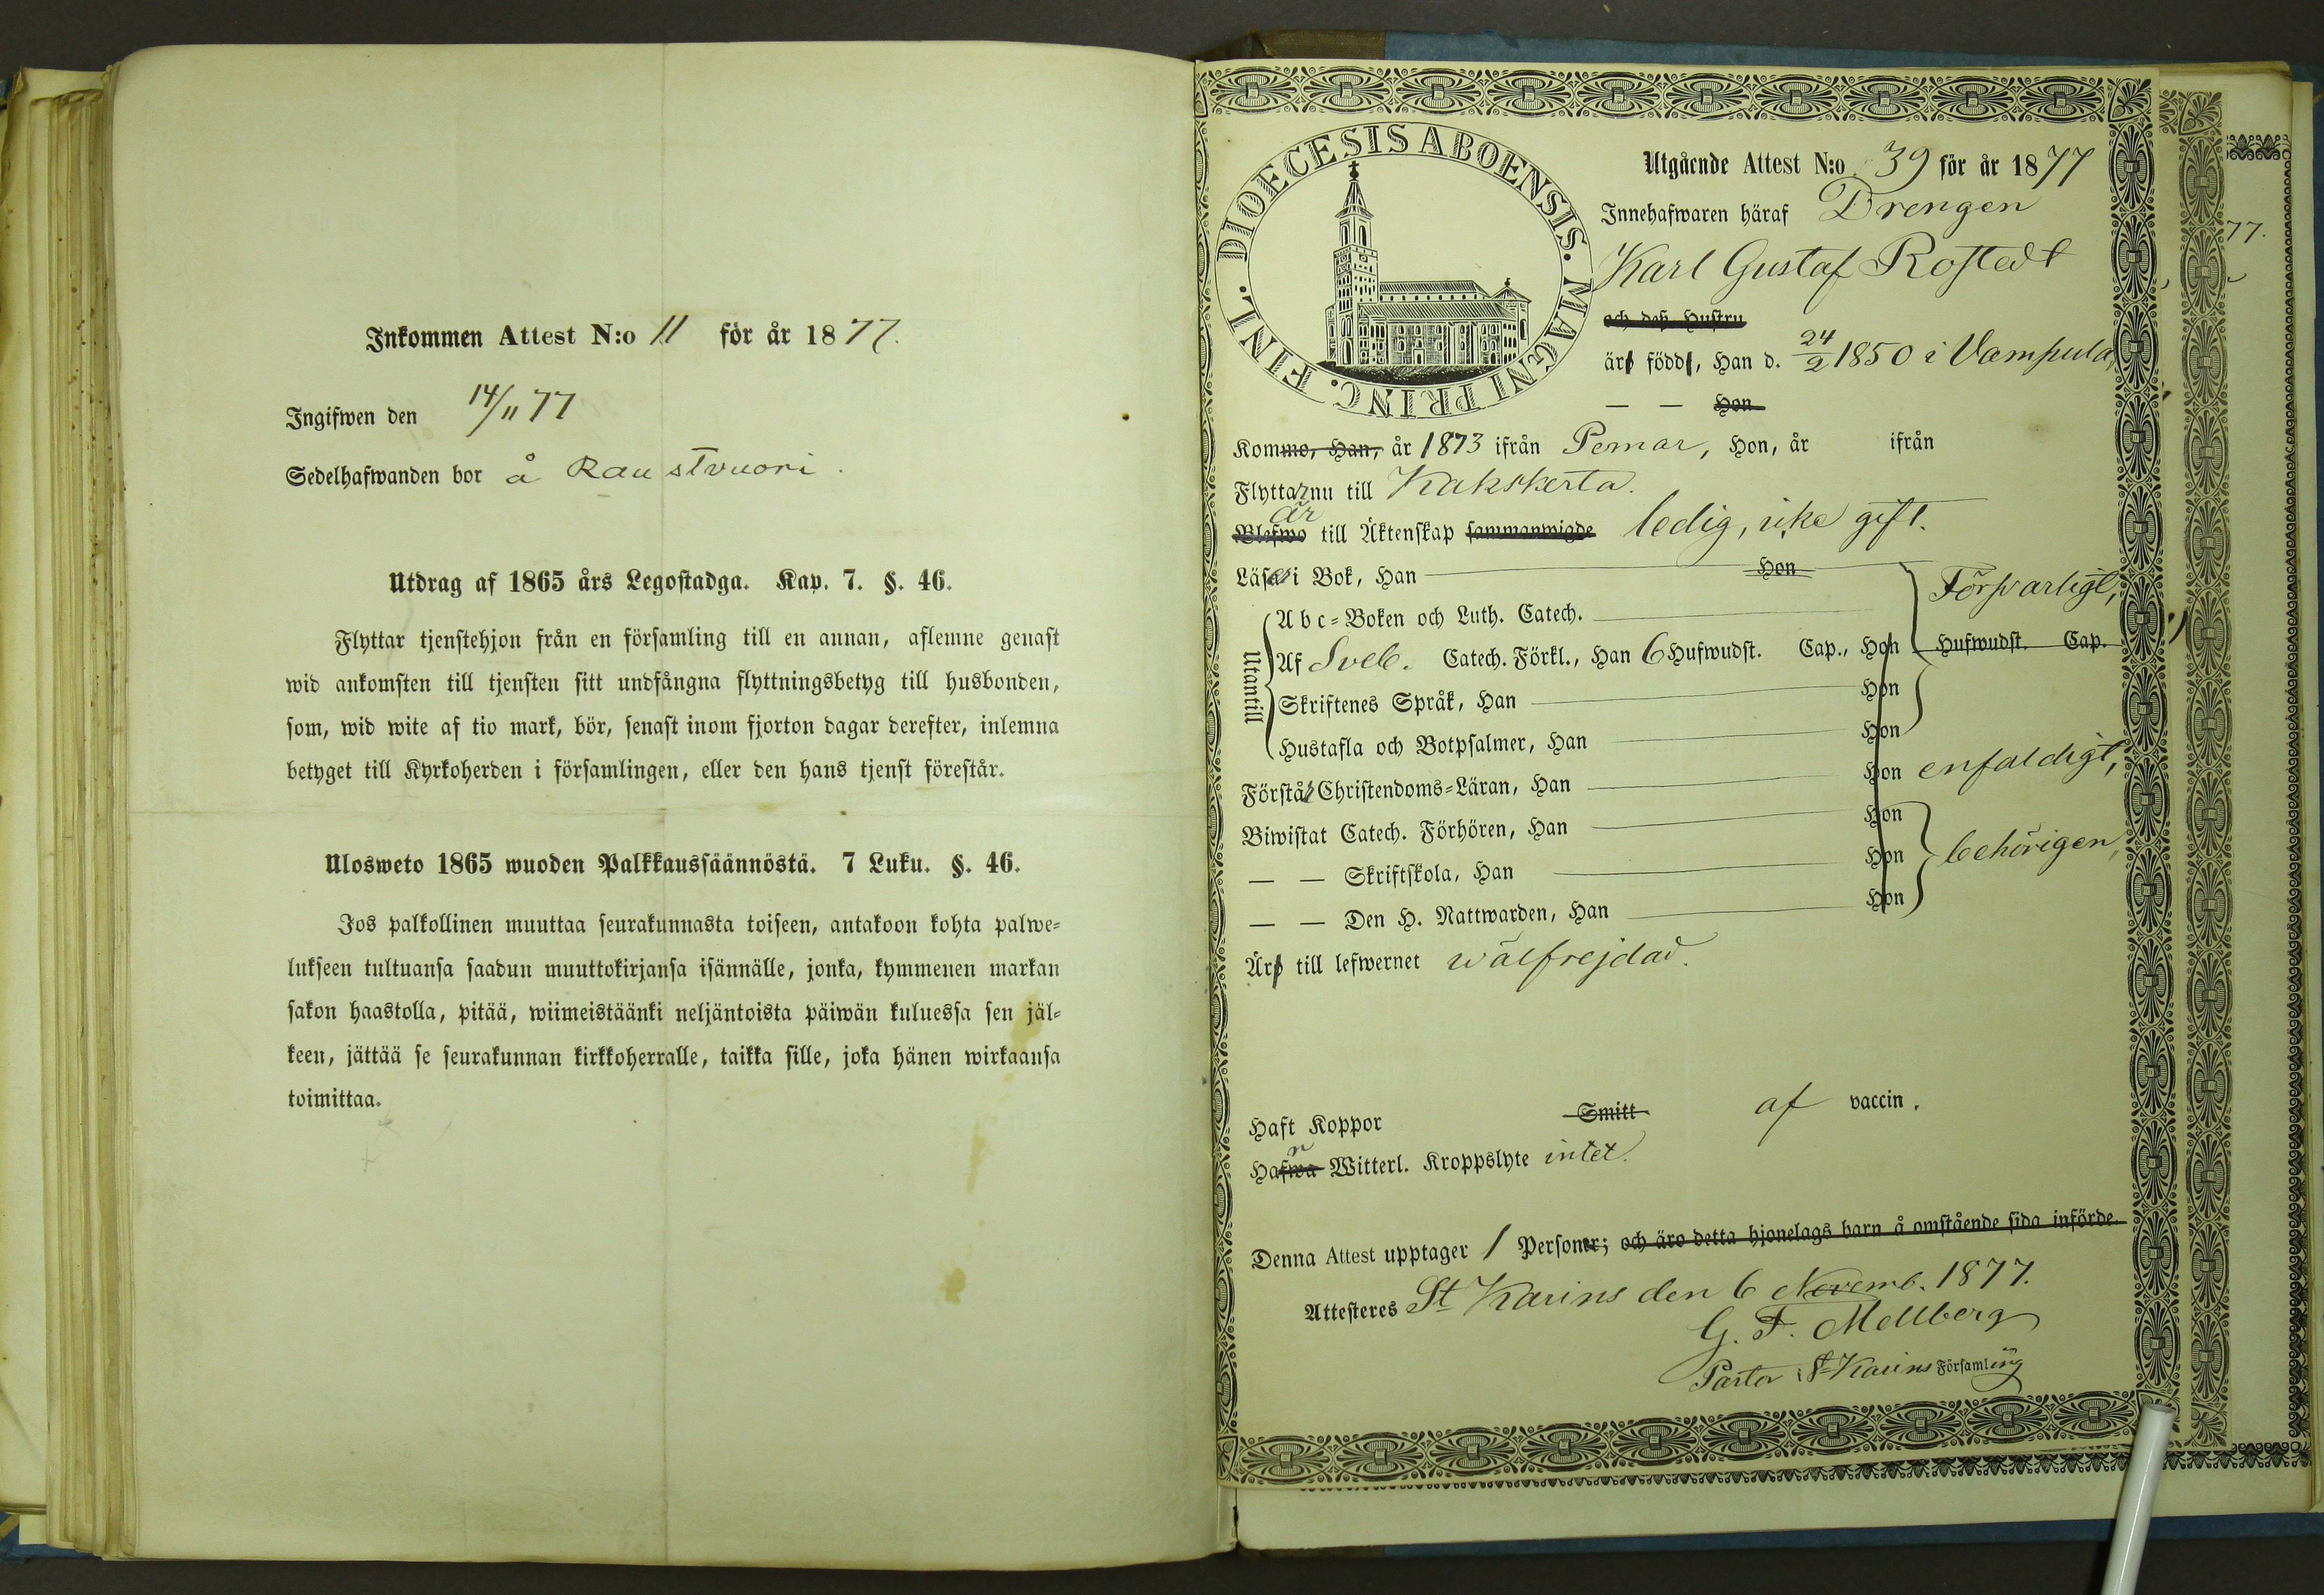 Inkommen Attest N:o 11 för år 1877.
Ingifwen den 14/11 77
Sedelhafwanden bor å Raustvuori.
Utdrag af 1865 års Legostadga. Kap. 7. §. 46.
Flyttar tjenstehjon från en församling till en annan, aflemne genast
wid ankomsten till tjensten sitt undfångna flyttningsbetyg till husbonden,
som, wid wite af tio mark, bör, senast inom fjorton dagar derefter, inlemna
betyget till Kyrkoherden i församlingen, eller den hans tjenst förestår.
Ulosweto 1865 wuoden Palkkaussäännöstä. 7 Luku. §. 46.
Jos palkollinen muuttaa seurakunnasta toiseen, antakoon kohta palwe-
lukseen tultuansa saadun muuttokirjansa isännälle, jonka, kymmenen markan
sakon haastolla, pitää, wiimeistäänki neljäntoista päiwän kuluessa sen jäl-
keen, jättää se seurakunnan kirkkoherralle, taikka sille, joka hänen wirkaansa
toimittaa.
DIOECESIS ABOENSIS. MAGNI PRINC. FINL.
Utgående Attest N:o 39 för år 1877
Innehafwaren häraf Drengen
Karl Gustaf Rostedt
och dess Hustru
äro födde, Han d. 24/2 1850 i Vampula,
— — Hon
Kommo, Han, år 1873 ifrån Pemar, Hon, år ifrån
Flyttar nu till Kakskerta.
är
Blefwo till Äktenskap sammanwigde ledig, icke gift.
Läser i Bok, Han Hon
Försvarligt,
Utantill
Abc-Boken och Luth. Catech.
Af Sveb. Catech. Förkl., Han 6 Hufwudst. Cap., Hon Hufwudst. Cap.
Skriftenes Språk, Han Hon
Hustafla och Botpsalmer, Han Hon
Förstår Christendoms-Läran, Han Hon enfaldigt,
Biwistat Catech. Förhören, Han Hon
— — Skriftskola, Han Hon behörigen,
— — Den H. Nattwarden, Han Hon
Äro till lefwernet wälfrejdad.
Haft Koppor Smitt af vaccin.
Hafwa Witterl. Kroppslyte intet.
Denna Attest upptager 1 Personer; och äro detta hjonelags barn å omstående sida införde.
Attesteres St Karins den 6 Novemb. 1877.
G. F. Mellberg
Pastor i St Karins Församling
77.